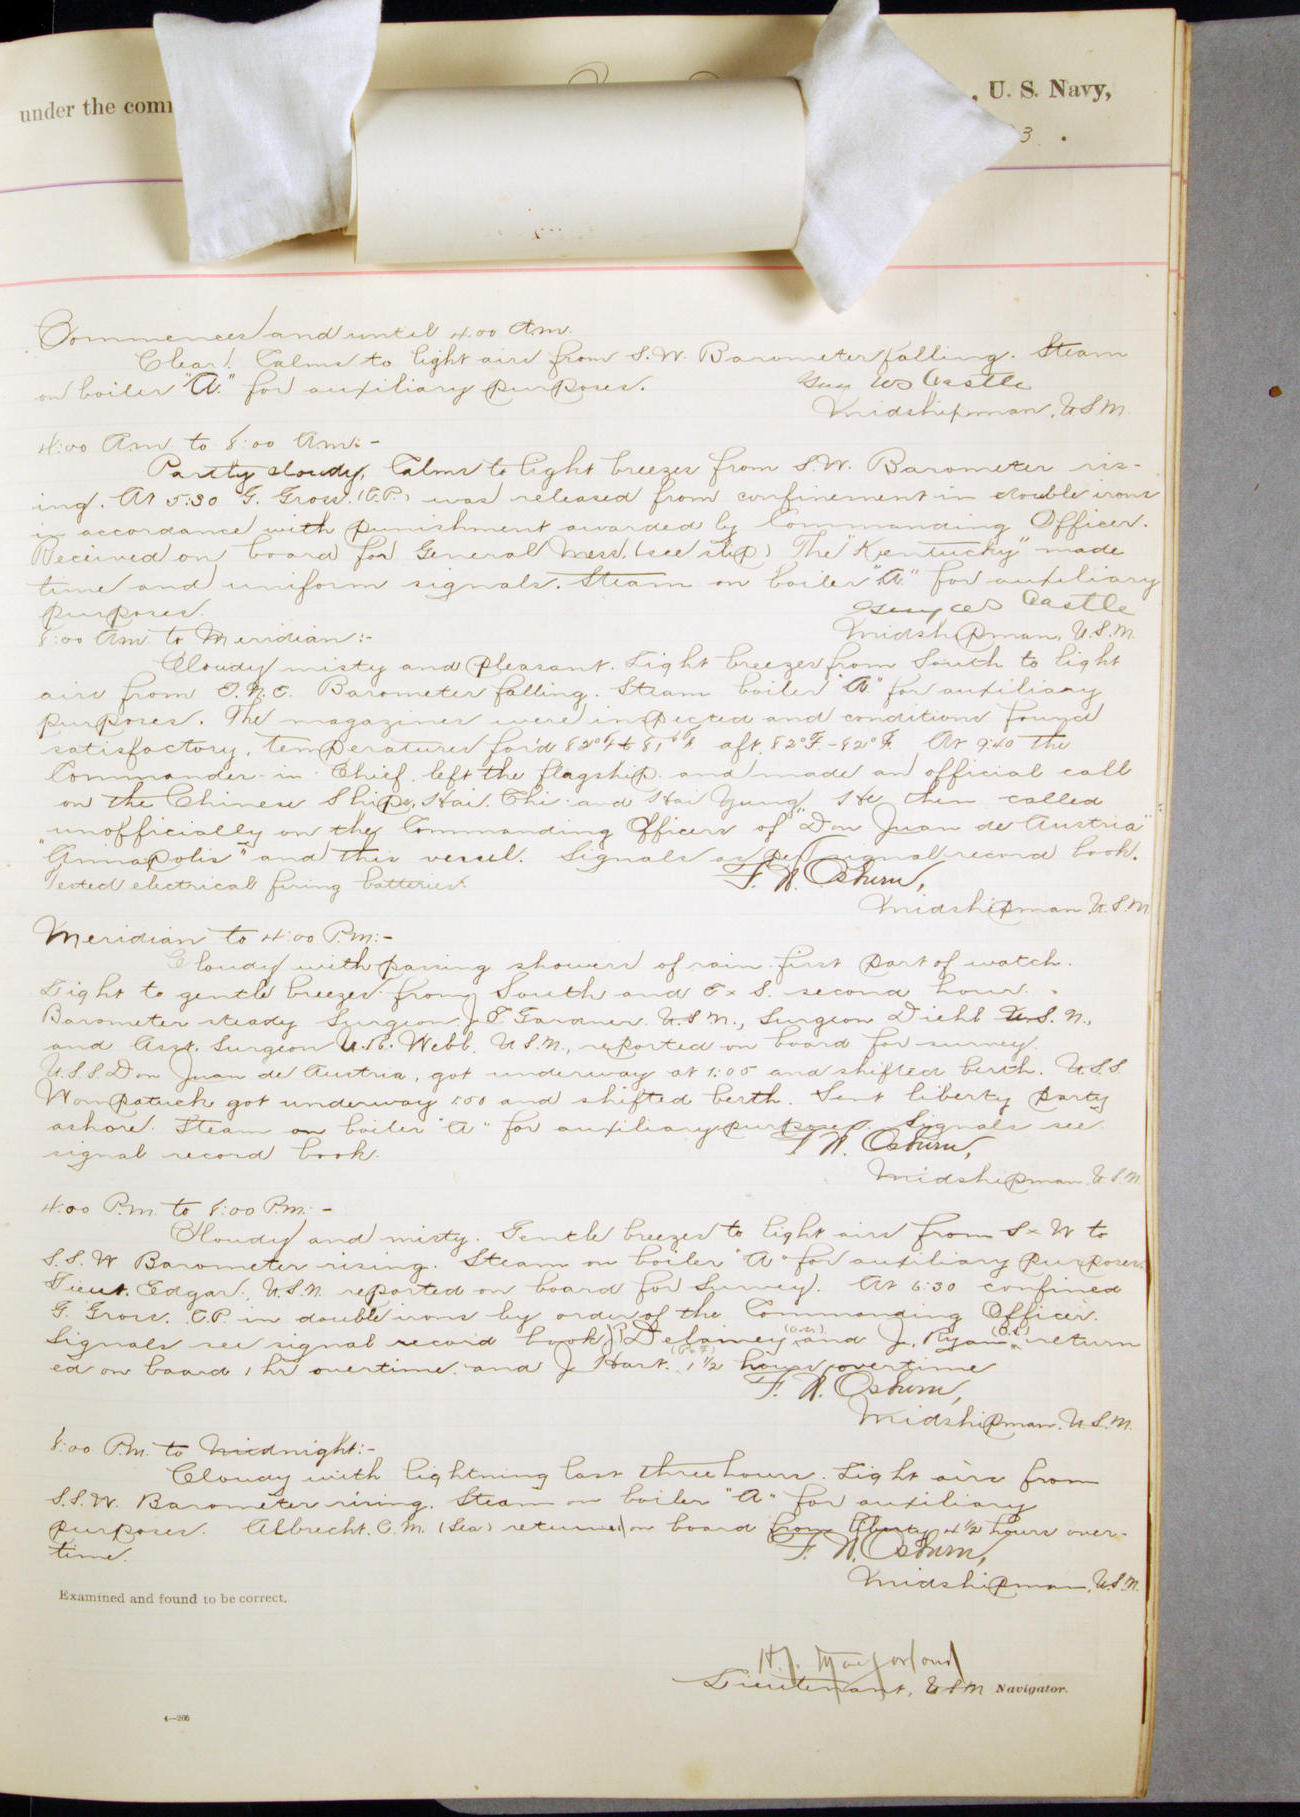 under the comm
, U. S. Navy,
3 .
Commences and until 4:00 Am.
Clear. Calms to light airs from S.W. Barometer falling. Steam
on boiler "A." for auxiliary purposes.
Guy W S Castle
Midshipman, U.S.N.
4:00 Am to 8:00 Am:-
Partly cloudy, Calms to light breezes from S.W. Barometer ris-
ing. At 5:30 G. Gross, (C.P.) was released from confinement in double irons
in accordance with punishment awarded by Commanding Officer.
Received on board for General Mess. (see slip) The "Kentucky" made
time and uniform signals. Steam on boiler "A" for auxiliary
purposes.
Guy W S Castle
Midshipman, U.S.N.
8:00 Am to Meridian:-
Cloudy misty and pleasant. Light breezes from South to light
airs from E.N.E. Barometer falling. Steam boiler "A" for auxiliary
purposes. The magazines were inspected and conditions found
satisfactory, temperatures for'd 82°F to 81°F. aft, 82°F.-82°F. At 9:40 the
Commander-in-Chief left the flagship and made an official call
on the Chinese Ships, Hai Chi and Hai Yung. He then called
unofficially on the Commanding Officers of "Don Juan de Austria"
"Annapolis" and this vessel. Signals as per signal record book.
Tested electrical firing batteries.
F. N. Osburn,
Midshipman U.S.N.
Meridian to 4:00 P.M:-
Cloudy with passing showers of rain first part of watch.
Light to gentle breezes from South and E x S. second hour.
Barometer steady Surgeon J. E. Gardner U.S.N., Surgeon Diehl U.S.N.,
and Asst. Surgeon U.R. Webb, U.S.N., reported on board for survey.
U.S.S Don Juan de Austria, got underway at 1:05 and shifted berth. U.S.S
Wompatuck got underway 1:00 and shifted berth. Sent liberty party
ashore. Steam on boiler "A" for auxiliary purposes. Signals see
signal record book.
F. N. Osburn,
Midshipman U.S.N.
4:00 P.m. to 8:00 P.M.:-
Cloudy and misty. Gentle breezes to light airs from S x W to
S.S.W Barometer rising. Steam on boiler "A" for auxiliary purposes.
Lieut. Edgar, U.S.N. reported on board for Survey. At 6:30 confined
G. Gross. C.P. in double irons by order of the Commanding Officer.
Signals see signal record book. P. Delainey and J. Ryan return
ed on board 1 hr overtime and J Hart. 1 1/2 hours overtime
F. N. Osburn,
Midshipman. U.S.N.
8:00 P.m. to Midnight:-
Cloudy with lightning last three hours. Light airs from
S.S.W. Barometer rising. Steam on boiler "A" for auxiliary
purposes. Albrecht, C.M. (Sea) returned on board from liberty 4 1/2 hours over-
time.
F. N. Osburn,
Midshipman, U.S.N.
Examined and found to be correct.
Lieutenant, U.S.N. Navigator.
4—206